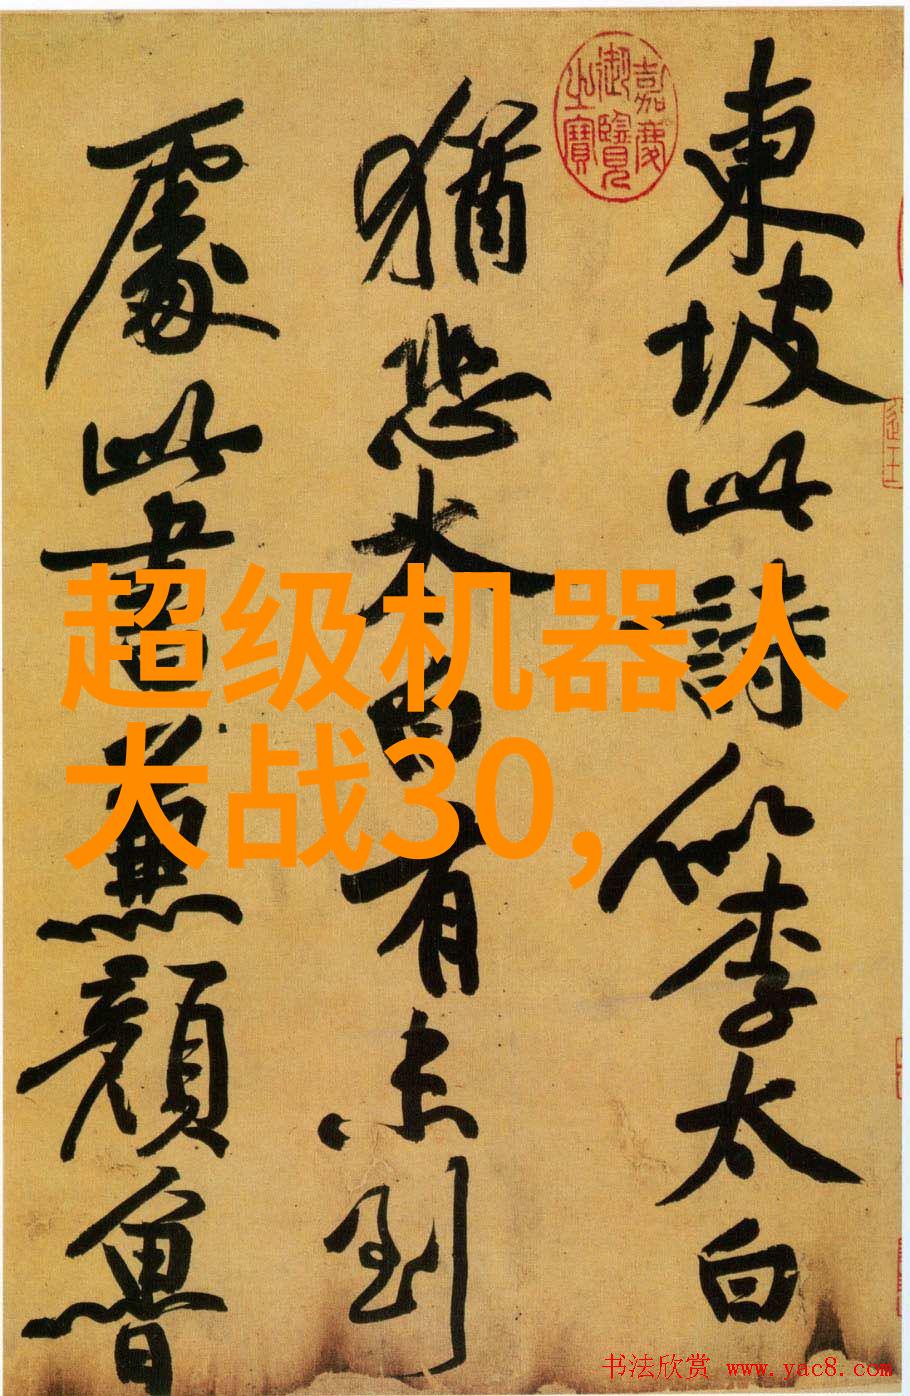 東坡此詩似李太白
猶恐太白有未到
處此書兼顏魯
嘉慶御覽之寶
超级机器人
大战30,
书法欣赏 www.yac8.com